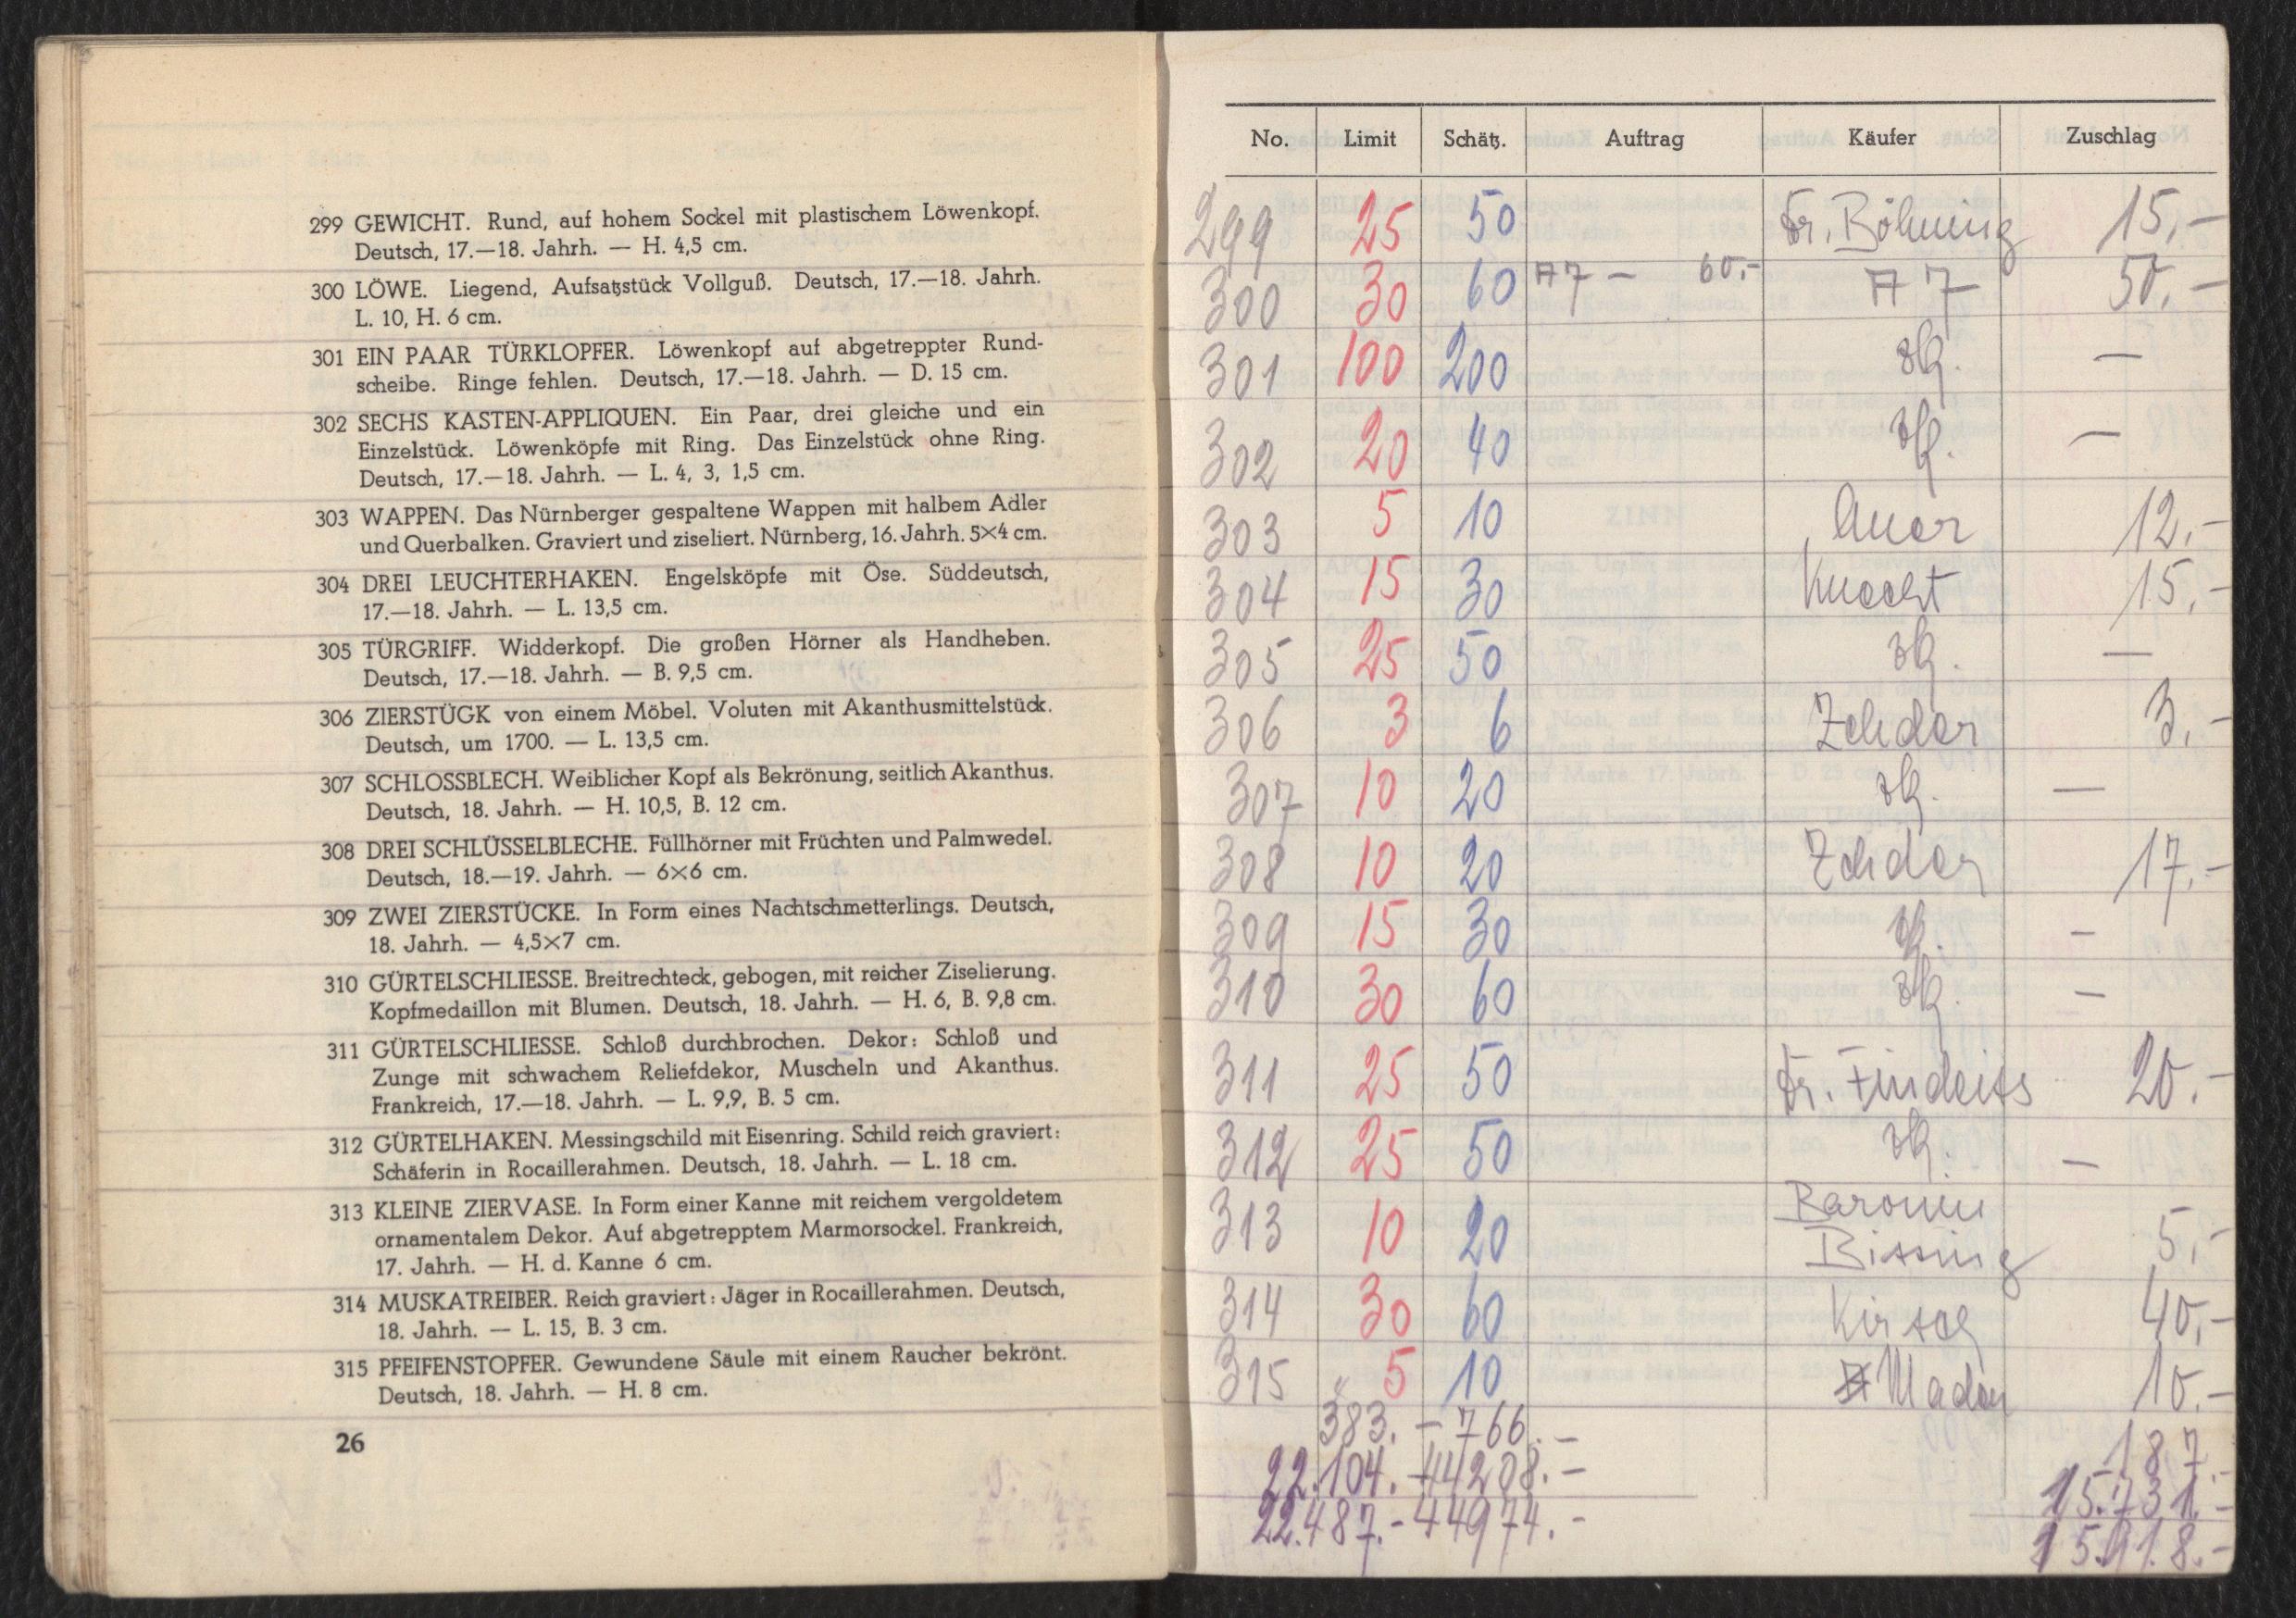 299 GEWICHT. Rund, auf hohem Sockel mit plastischem Löwenkopf.
Deutsch, 17.—18. Jahrh. — H. 4,5 cm.
300 LÖWE. Liegend, Aufsatzstück Vollguß. Deutsch, 17.—18. Jahrh.
L. 10, H. 6 cm.
301 EIN PAAR TÜRKLOPFER. Löwenkopf auf abgetreppter Rund-
scheibe. Ringe fehlen. Deutsch, 17.—18. Jahrh. — D. 15 cm.
302 SECHS KASTEN-APPLIQUEN. Ein Paar, drei gleiche und ein
Einzelstück. Löwenköpfe mit Ring. Das Einzelstück ohne Ring.
Deutsch, 17.—18. Jahrh. — L. 4, 3, 1,5 cm.
303 WAPPEN. Das Nürnberger gespaltene Wappen mit halbem Adler
und Querbalken. Graviert und ziseliert. Nürnberg, 16. Jahrh. 5×4 cm.
304 DREI LEUCHTERHAKEN. Engelsköpfe mit Öse. Süddeutsch,
17.—18. Jahrh. — L. 13,5 cm.
305 TÜRGRIFF. Widderkopf. Die großen Hörner als Handheben.
Deutsch, 17.—18. Jahrh. — B. 9,5 cm.
306 ZIERSTÜGK von einem Möbel. Voluten mit Akanthusmittelstück.
Deutsch, um 1700. — L. 13,5 cm.
307 SCHLOSSBLECH. Weiblicher Kopf als Bekrönung, seitlich Akanthus.
Deutsch, 18. Jahrh. — H. 10,5, B. 12 cm.
308 DREI SCHLÜSSELBLECHE. Füllhörner mit Früchten und Palmwedel.
Deutsch, 18.—19. Jahrh. — 6×6 cm.
309 ZWEI ZIERSTÜCKE. In Form eines Nachtschmetterlings. Deutsch,
18. Jahrh. — 4,5×7 cm.
310 GÜRTELSCHLIESSE. Breitrechteck, gebogen, mit reicher Ziselierung.
Kopfmedaillon mit Blumen. Deutsch, 18. Jahrh. — H. 6, B. 9,8 cm.
311 GÜRTELSCHLIESSE. Schloß durchbrochen. Dekor: Schloß und
Zunge mit schwachem Reliefdekor, Muscheln und Akanthus.
Frankreich, 17.—18. Jahrh. — L. 9,9, B. 5 cm.
312 GÜRTELHAKEN. Messingschild mit Eisenring. Schild reich graviert:
Schäferin in Rocaillerahmen. Deutsch, 18. Jahrh. — L. 18 cm.
313 KLEINE ZIERVASE. In Form einer Kanne mit reichem vergoldetem
ornamentalem Dekor. Auf abgetrepptem Marmorsockel. Frankreich,
17. Jahrh. — H. d. Kanne 6 cm.
314 MUSKATREIBER. Reich graviert: Jäger in Rocaillerahmen. Deutsch,
18. Jahrh. — L. 15, B. 3 cm.
315 PFEIFENSTOPFER. Gewundene Säule mit einem Raucher bekrönt.
Deutsch, 18. Jahrh. — H. 8 cm.
26
No. Limit Schätz. Auftrag Käufer Zuschlag
299 25 50 Dr. Böhming 15,-
300 30 60 A7 - 60.- A7 50.-
301 100 200 —
302 20 40 —
303 5 10 Auer 12.-
304 15 30 Knecht 15.-
305 25 50 —
306 3 6 Zehder 3.-
307 10 20 —
308 10 20 Zehder 17.-
309 15 30 —
310 30 60 —
311 25 50 Dr. Findeiss 20.-
312 25 50 —
313 10 20 Baronin
Bissing 5,-
314 30 60 Kirsch 40,-
315 5 10 10.-
383.- 766.-
187.-
22.104.- 44208.-
15.731.-
22.487.- 44974.-
15.918.-